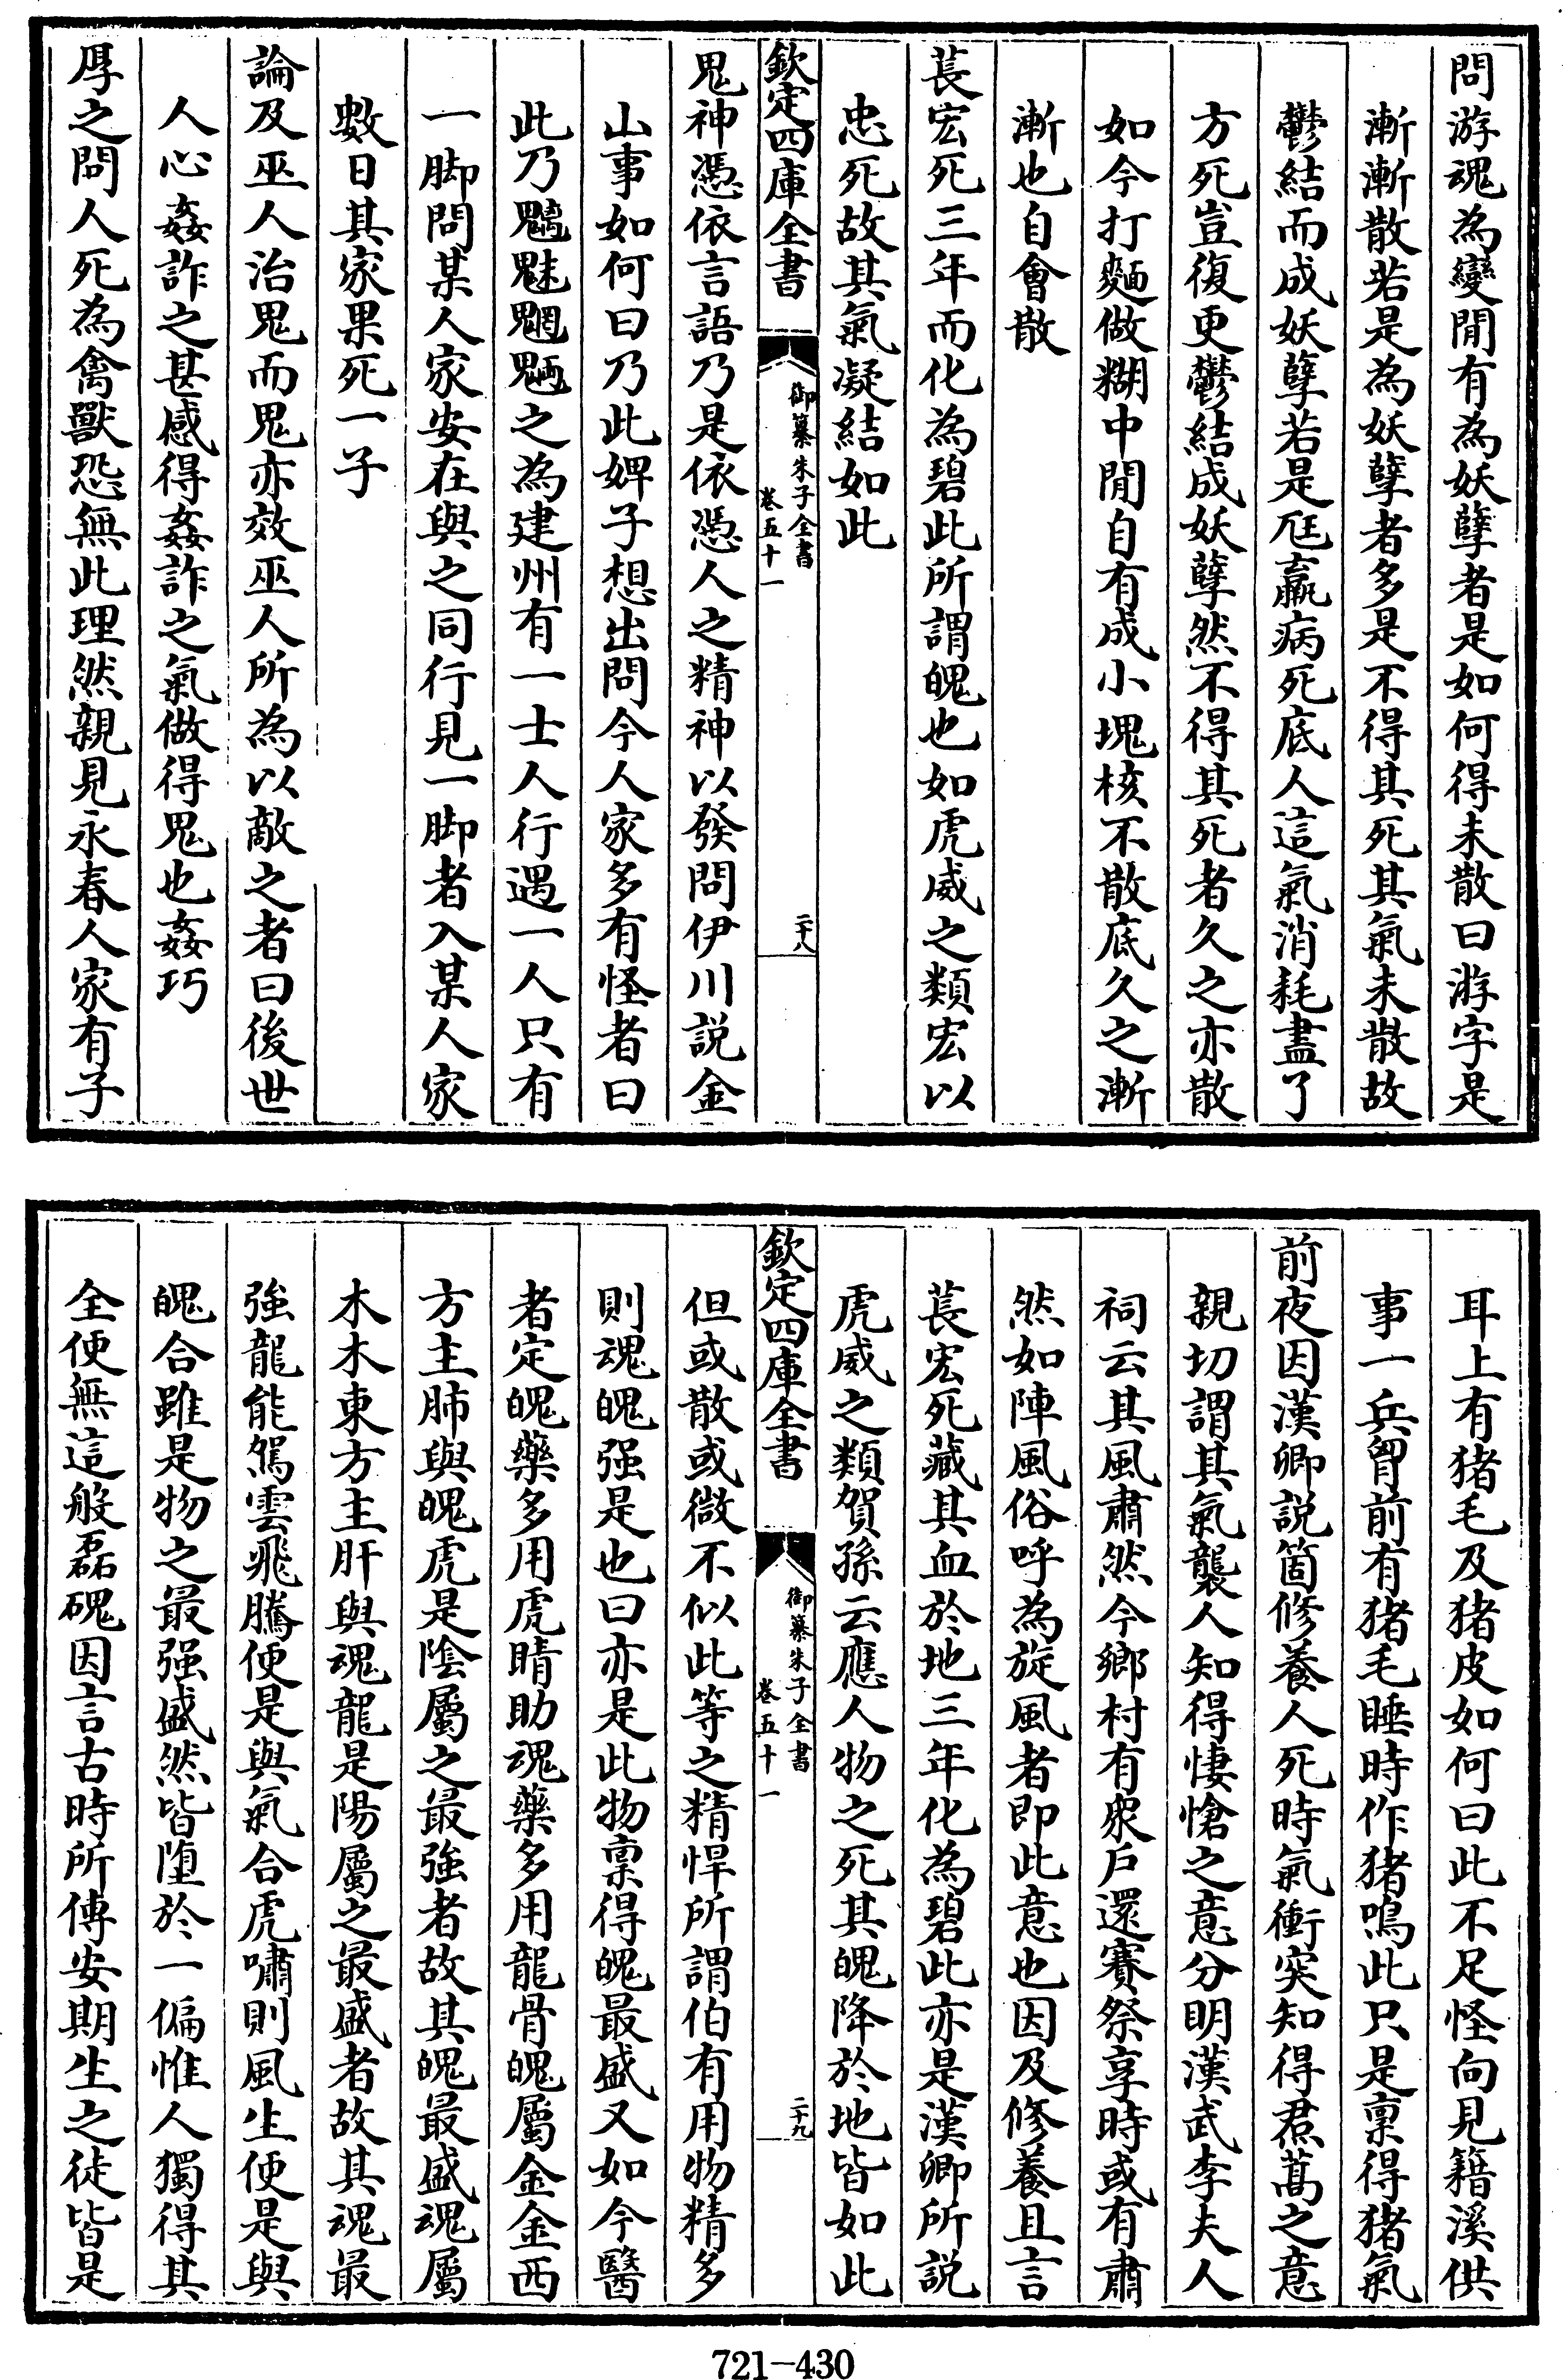 問游魂為變閒有為妖孽者是如何得未散曰游字是
漸漸散若是為妖孽者多是不得其死其氣未散故
鬱結而成妖孽若是尫羸病死底人這氣消耗盡了
方死豈復更鬱結成妖孽然不得其死者久之亦散
如今打麵做糊中閒自有成小塊核不散底久之漸
漸也自會散
萇宏死三年而化為碧此所謂魄也如虎威之類宏以
忠死故其氣凝結如此
欽定四庫全書
御纂朱子全書
卷五十一
二十八
鬼神憑依言語乃是依憑人之精神以發問伊川説金
山事如何曰乃此婢子想出問今人家多有怪者曰
此乃魑魅魍魎之為建州有一士人行遇一人只有
一脚問某人家安在與之同行見一脚者入某人家
數日其家果死一子
論及巫人治鬼而鬼亦效巫人所為以敵之者曰後世
人心姦詐之甚感得姦詐之氣做得鬼也姦巧
厚之問人死為禽獸恐無此理然親見永春人家有子
耳上有猪毛及猪皮如何曰此不足怪向見籍溪供
事一兵胷前有猪毛睡時作猪鳴此只是禀得猪氣
前夜因漢卿説箇修養人死時氣衝突知得焄蒿之意
親切謂其氣襲人知得悽愴之意分明漢武李夫人
祠云其風肅然今鄉村有衆戶還賽祭享時或有肅
然如陣風俗呼為旋風者即此意也因及修養且言
萇宏死藏其血於地三年化為碧此亦是漢卿所説
虎威之類賀孫云應人物之死其魄降於地皆如此
欽定四庫全書
御纂朱子全書
卷五十一
二十九
但或散或微不似此等之精悍所謂伯有用物精多
則魂魄强是也曰亦是此物禀得魄最盛又如今醫
者定魄藥多用虎睛助魂藥多用龍骨魄屬金金西
方主肺與魄虎是陰屬之最強者故其魄最盛魂屬
木木東方主肝與魂龍是陽屬之最盛者故其魂最
強龍能駕雲飛騰便是與氣合虎嘯則風生便是與
魄合雖是物之最强盛然皆墮於一偏惟人獨得其
全便無這般磊磈因言古時所傳安期生之徒皆是
721-430